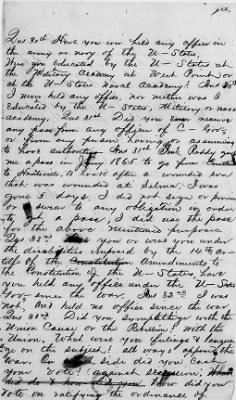 Qus 30th Have you ever held any office in
the army or navy of the U-States.
Were you educated by the U-States at
the Military Academy at West Point or
at the U-States Naval Academy? Ans 30th
I never held any office, nor neither was I
Educated by the U-States, Military or naval
academy. Qus 31st Did you ever receive
any pass from any officer of C- Gov-
or from any person having or assuming
to have authority. Ans 31st
me a pass in 1865 to go from
to Huntsville, to look after a wounded son
that was wounded at Selma. I was
gone 8 days, I did not sign or promise
or swear to any obligation in order
to get a pass, I did use the pass
for the above mentioned purpose.
Qus 32nd Were you or was you under
the disabilities imposed by the 14th ar-
of the Constitution Amendments to
the Constitution of the U-States, have
you held any offices under the U-States
Gov- since the war. Ans 32nd I was
not, and held no office since the war.
Qus 33rd Did you sympathize with the
Union Cause or the Rebellion? with the
Union. What were your feelings & language
on the subject? all ways oppose the
War. On which side did you Cast
your Vote? against secession,
did how did your
Vote on ratifying the ordinance of